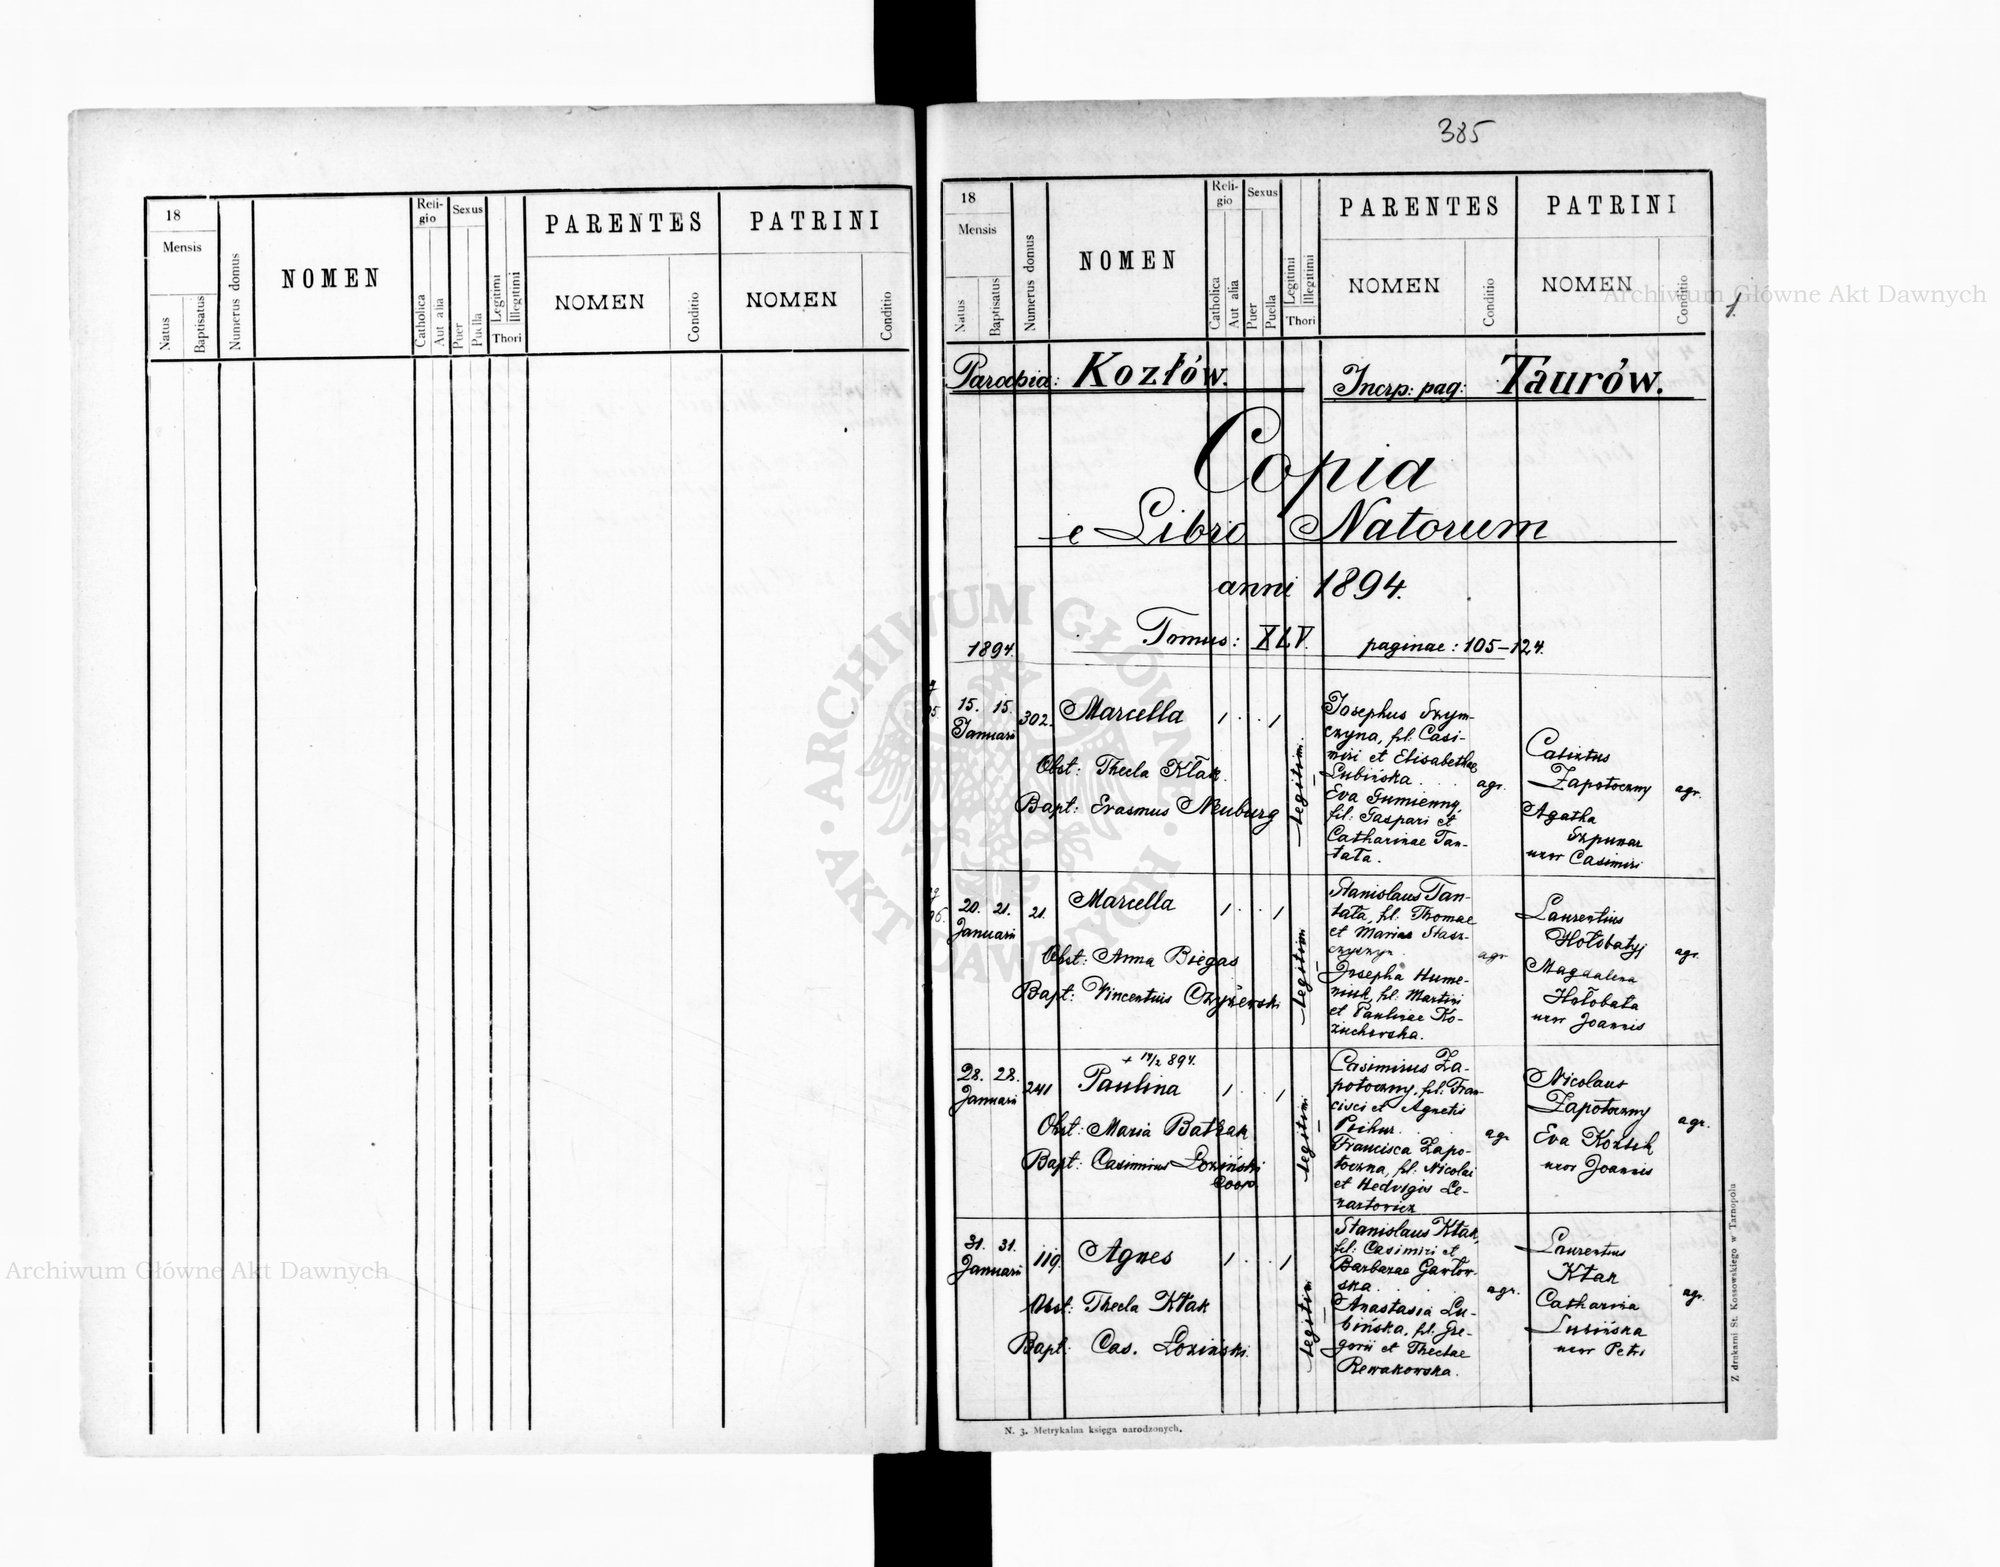 18
Mensis
Natus
Baptisatus
Numerus domus
NOMEN
Reli-
gio
Catholica
Aut alia
Sexus
Puer
Puella
Legitimi
Illegitimi
Thori
PARENTES
NOMEN
Conditio
PATRINI
NOMEN
Conditio
385
18
Mensis
Natus
Baptisatus
Numerus domus
NOMEN
Reli-
gio
Catholica
Aut alia
Sexus
Puer
Puella
Legitimi
Illegitimi
Thori
PARENTES
NOMEN
Conditio
PATRINI
NOMEN
Conditio
1.
Parochia: Kozłów.
Incrp: pag: Taurów.
Copia
e Libro Natorum
anni 1894.
Tomus: XLV. paginae: 105-124.
1894.
15. 15.
Januarii
302.
Marcella
1 . . 1
Obst: Thecla Kłak.
Bapt: Erasmus Neuburg
legitimi
Josephus Szym-
czyna, fil: Casi-
miri et Elisabethae
Lubińska
agr.
Eva Gumienny,
fil: Gaspari et
Catharinae Tan-
tata.
Calixtus
Zapotoczny
agr.
Agatha
Szpunar
uxor Casimiri
20. 21.
Januarii
21.
Marcella
1 . . 1
Obst: Anna Biegas
Bapt: Vincentius Czyżewski
legitimi
Stanislaus Tan-
tata, fil. Thomae
et Mariae Stasz-
agr
Josepha Hume-
niuk, fil: Martini
et Paulinae Ko-
żuchowska.
Laurentius
Hołobatyj
agr.
Magdalena
Hołobata
uxor Joannis
28. 28.
Januarii
241
+ 14/2 894.
Paulina
1 . . 1
Obst: Maria Batrak
Bapt: Casimirus Łoziński
Coop.
legitimi
Casimirus Za-
potoczny, fil: Fran-
cisci et Agnetis
agr
Francisca Zapo-
toczna, fil: Nicolai
et Hedvigis Le-
nartowicz
Nicolaus
Zapotoczny
agr.
Eva
uxor Joannis
31. 31.
Januarii
119.
Agnes
1 . . 1
Obst: Thecla Kłak
Bapt: Cas. Łoziński.
legitimi
Stanislaus Kłak,
fil: Casimiri et
Barbarae Gawłow-
ska
agr.
Anastasia Lu-
bińska, fil: Gre-
gorii et Theclae
Rewakowska.
Laurentius
Kłak
agr.
Catharina
Lubińska
uxor Petri
N. 3. Metrykalna księga narodzonych.
Z drukarni St. Kossowskiego w Tarnopolu
Archiwum Główne Akt Dawnych
Archiwum Główne Akt Dawnych
ARCHIWUM GŁÓWNE · AKT DAWNYCH ·